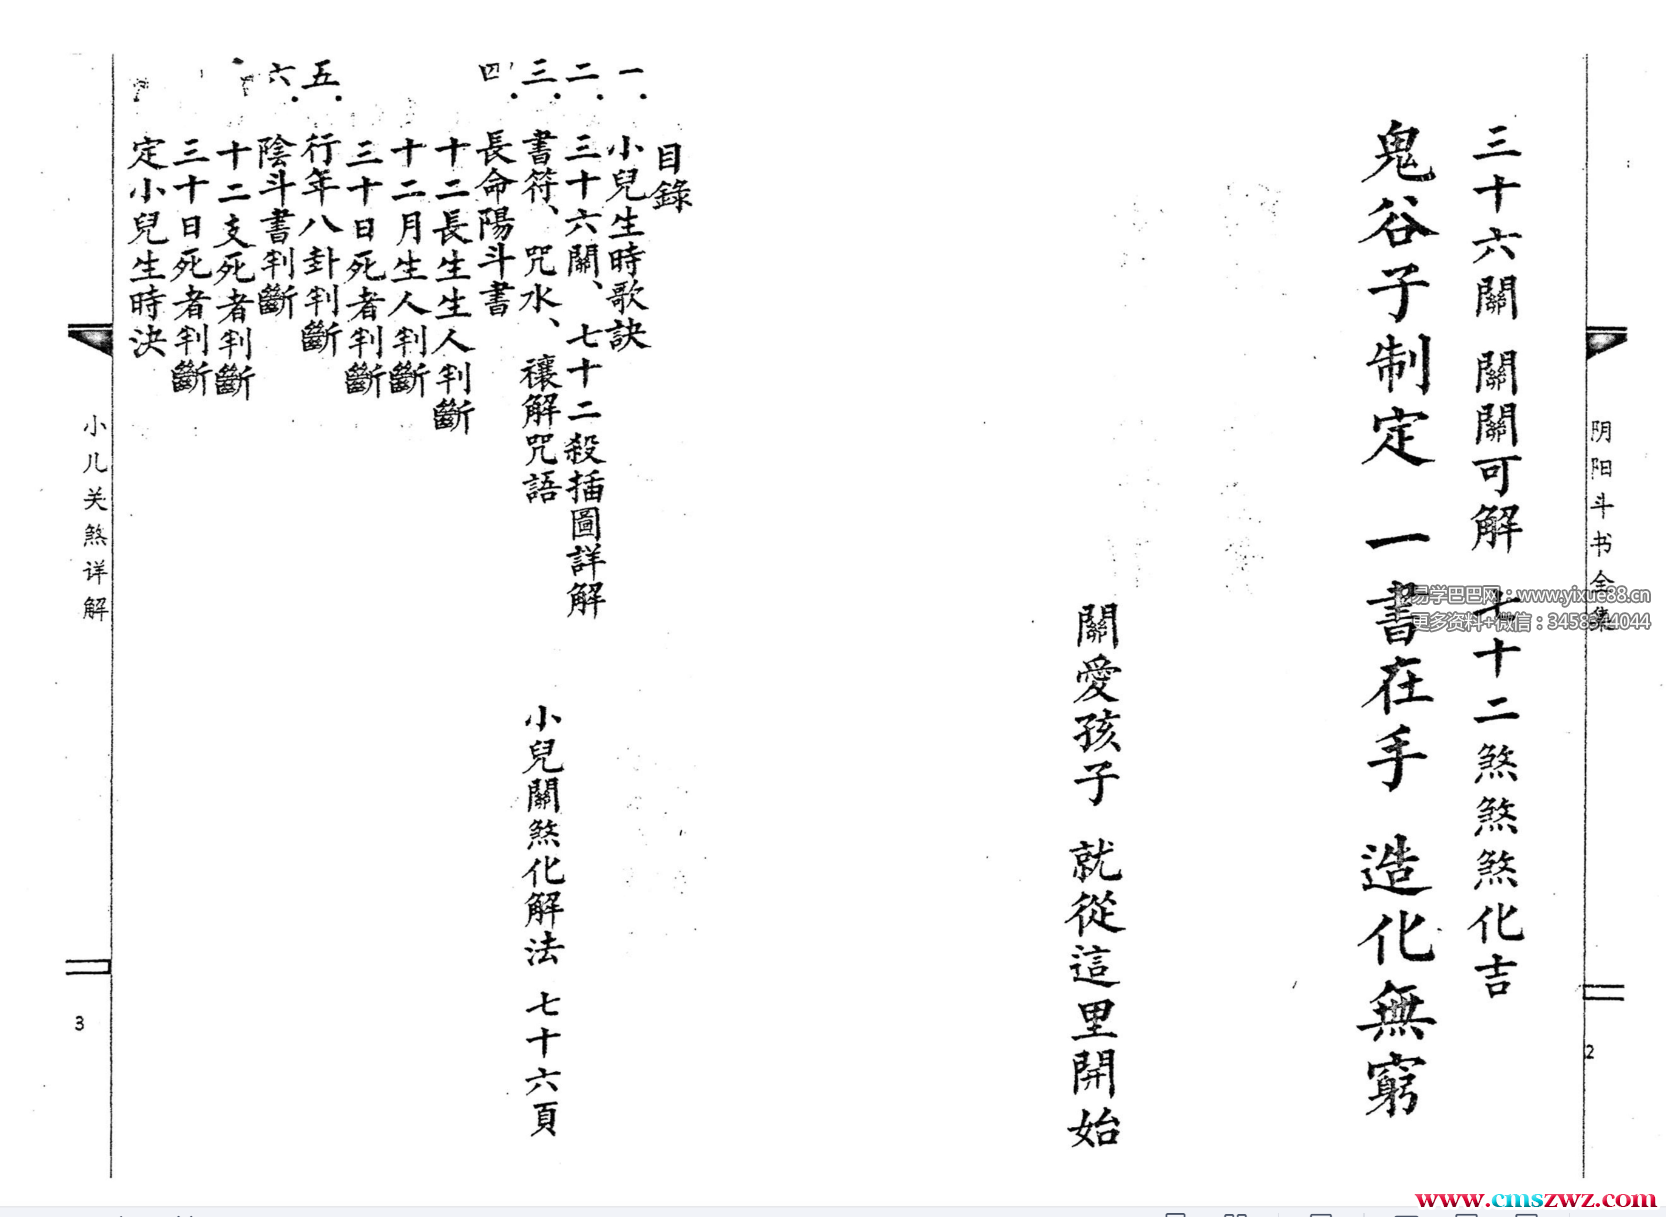 阴阳斗书全集
三十六關 關關可解 七十二煞煞煞化吉
鬼谷子制定 一書在手 造化無窮
關愛孩子 就從這里開始
2
目錄
一. 小兒生時歌訣
二. 三十六關、七十二殺插圖詳解
三. 書符、咒水、禳解咒語 小兒關煞化解法 七十六頁
四. 長命陽斗書
十二長生生人判斷
十二月生人判斷
三十日死者判斷
五. 行年八卦判斷
六. 陰斗書判斷
十二支死者判斷
三十日死者判斷
定小兒生時決
小儿关煞详解
3
易学巴巴网：www.yixue88.cn
更多资料+微信：3458344044
www.cmszwz.com